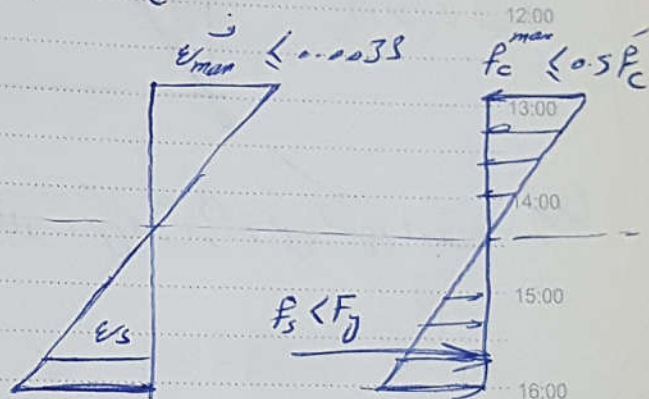 12:00
ε max ≤ 0.0035
f c max ≤ 0.5 f'c
13:00
14:00
15:00
f s < F y
ε s
16:00